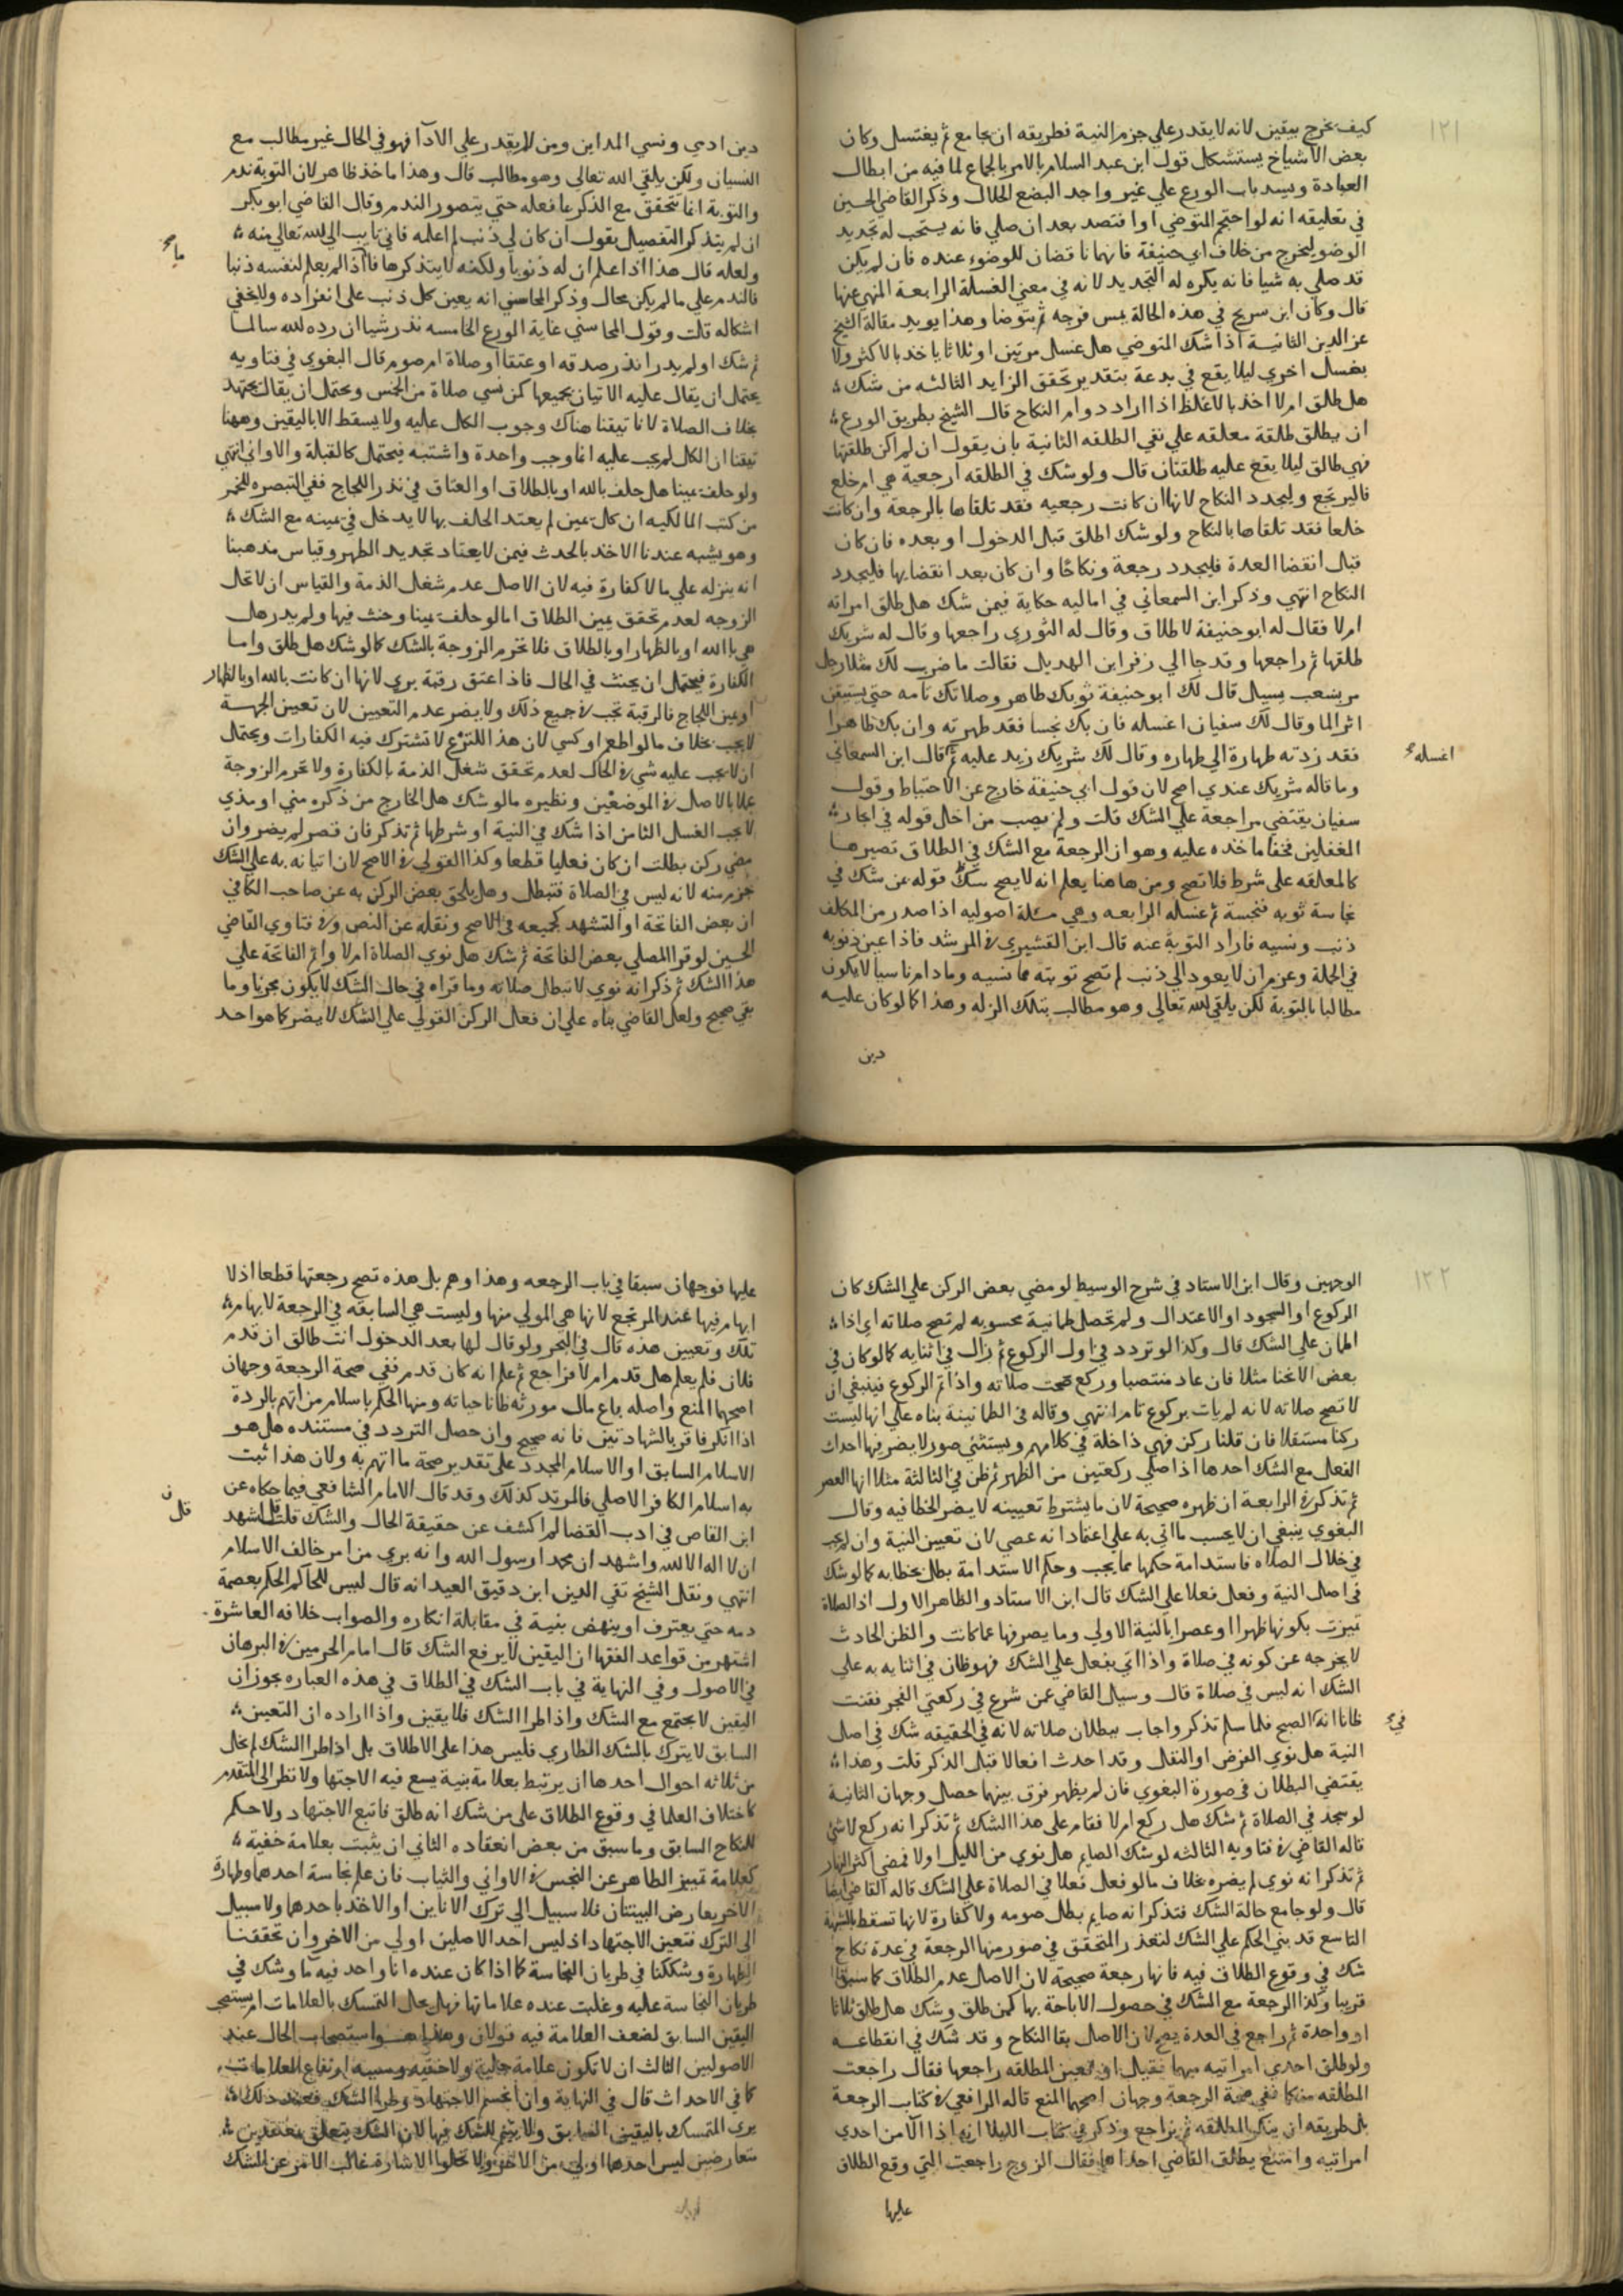 ١٢١
كيف يخرج بيقين لانه لا يقدر علي جزم النية فطريقه ان يجامع ثم يغتسل وكان
بعض الاشياخ يستشكل قول ابن عبد السلام بالامر بالجماع لما فيه من ابطال
العبادة ويسد باب الورع علي غير واجد البضع الحلال وذكر القاضي الحسين
في تعليقه انه لو احتجم المتوضي او افتصد بعد ان صلي فانه يستحب له تجديد
الوضو ليخرج من خلاف ابي حنيفة فانهما ناقضان للوضوء عنده فان لم يكن
قد صلي به شيا فانه يكره له التجديد لانه في معني الغسلة الرابعة المنهي عنها
قال وكان ابن سريج في هذه الحالة يمس فرجه ثم يتوضا وهذا يويد مقالة الشيخ
عز الدين الثانية اذا شك المتوضي هل غسل مرتين او ثلاثا ياخد بالاكثر ولا
يغسل اخري ليلا يقع في بدعة بتقدير تحقق الزايد الثالثه من شك
هل طلق ام لا اخذ بالاغلظ اذا اراد دوام النكاح قال الشيخ بطريق الورع
ان يطلق طلقة معلقه علي نفي الطلقه الثانية بان يقول ان لم اكن طلقتها
فهي طالق ليلا يقع عليه طلقتان قال ولو شك في الطلقه ارجعية هي ام خلع
فاليرتجع وليجدد النكاح لانها ان كانت رجعيه فقد تلافاها بالرجعة وان كانت
خلعا فقد تلافاها بالنكاح ولو شك اطلق قبل الدخول او بعده فان كان
قبل انقضا العدة فليجدد رجعة ونكاحا وان كان بعد انقضايها فليجدد
النكاح انتهي وذكر ابن السمعاني في اماليه حكاية فيمن شك هل طلق امراته
ام لا فقال له ابو حنيفة لا طلاق وقال له الثوري راجعها وقال له شريك
طلقها ثم راجعها وقد جا الي زفر ابن الهديل فقالت ما ضرب لك مثلا رجل
مر بشعب يسيل قال لك ابو حنيفة ثوبك طاهر وصلاتك تامه حتي يستيقن
اثر الما وقال لك سفيان اغسله فان يك نجسا فقد طهرته وان يك طاهرا
فقد زدته طهارة الي طهاره وقال لك شريك زيد عليه ثم قال ابن السمعاني
اغسله
وما قاله شريك عندي اصح لان قول ابي حنيفة خارج عن الاحتياط وقول
سفيان يقتضي مراجعة علي الشك قلت ولم يصب من ادخل قوله في اخبار
المغفلين فخفا ماخده عليه وهو ان الرجعة مع الشك في الطلاق تصيرها
كالمعلقه على شرط فلا تصح ومن هاهنا يعلم انه لا يصح قوله عن شك في
نجاسة ثوبه فنجسة ثم غسله الرابعه وهي مسلة اصوليه اذا صدر من المكلف
ذنب ونسيه فاراد التوبة عنه قال ابن القشيري في المرشد فاذا عين ذنوبه
في الجملة وعزم ان لا يعود الي ذنب لم تصح توبته مما نسيه وما دام ناسيا لا يكون
مطالبا بالتوبة لكن يلقي لله تعالي وهو مطالب بتلك الزله وهذا كما لو كان عليه
دين
دين ادمي ونسي المداين ومن لا يقدر علي الادآ فهو في الحال غير مطالب مع
النسيان ولكن يلقي الله تعالي وهو مطالب قال وهذا ماخذ ظاهر لان التوبة ندم
والتوبة انما تتحقق مع الذكر بما فعله حتي يتصور الندم وقال القاضي ابو بكر
ان لم يتذكر التفصيل يقول ان كان لي ذنب لم اعلمه فاني تايب الي لله تعالي منه
ولعله قال هذا اذا علم ان له ذنوبا ولكنه لا يتذكرها فاما اذا لم يعلم لنفسه ذنبا
فالندم علي ما لم يكن محال وذكر المحاسبي انه يعين كل ذنب على انفراده ولا يخفي
اشكاله قلت وقول المحاسبي غاية الورع الخامسه نذر شيا ان رده لله سالما
ثم شك او لم يدر انذر صدقه او عتقا او صلاة ام صوم قال البغوي في فتاويه
يحتمل ان يقال عليه الاتيان بجميعها كمن نسي صلاة من الخمس ويحتمل ان يقال يجتهد
بخلاف الصلاة لانا تيقنا هناك وجوب الكل عليه ولا يسقط الا باليقين وههنا
تيقنا ان الكل لم يجب عليه انما وجب واحدة واشتبه فيحتمل كالقبلة والاواني انتهي
ولو حلف يمينا هل حلف بالله او بالطلاق او العتاق في نذر اللجاج ففي التبصره للخمر
من كتب المالكيه ان كل يمين لم يعتد الحلف بها لا يدخل في يمينه مع الشك
وهو يشبه عندنا الاخد بالحدث فيمن لا يعتاد تجديد الطهر وقياس مذهبنا
انه ينزله علي ما لا كفارة فيه لان الاصل عدم شغل الذمة والقياس ان لا تحال
الزوجه لعدم تحقق يمين الطلاق اما لو حلف يمينا وحنث فيها ولم يدر هل
هي بالله او بالظهار او بالطلاق فلا تحرم الزوجة بالشك كما لو شك هل طلق واما
الكفارة فيحتمل ان يحنث في الحال فاذا اعتق رقبة بري لانها ان كانت بالله او بالظهار
او يمين اللجاج فالرقبة تجب في جميع ذلك ولا يضر عدم التعيين لان تعيين الجهة
لا يجب بخلاف ما لو اطعم او كسي لان هذا النوع لا تشترك فيه الكفارات ويحتمل
ان لا يجب عليه شي في الحال لعدم تحقق شغل الذمة بالكفارة ولا تحرم الزوجة
عملا بالاصل في الموضعين ونظيره ما لو شك هل الخارج من ذكره مني او مذي
لا يجب الغسل الثامن اذا شك في النية او شرطها ثم تذكر فان قصر لم يضر وان
مضي ركن بطلت ان كان فعليا قطعا وكذا القولي في الاصح لان اتيانه به علي الشك
جزم منه لانه ليس في الصلاة فتبطل وهل يلحق بعض الركن به عن صاحب الكافي
ان بعض الفاتحة او التشهد كجميعه في الاصح ونقله عن النص وفي فتاوي القاضي
الحسين لو قرا المصلي بعض الفاتحة ثم شك هل نوي الصلاة ام لا واتم الفاتحة علي
هذا الشك ثم ذكر انه نوي لا تبطل صلاته وما قراه في حال الشك لا يكون مجزيا وما
بقي صحيح ولعل القاضي بناه علي ان فعل الركن القولي علي الشك لا يضر كما هو احد
١٢٢
الوجهين وقال ابن الاستاد في شرح الوسيط لو مضي بعض الركن علي الشك كان
الركوع او السجود او الاعتدال ولم تحصل طمانية محسوبه لم تصح صلاته اي اذا
اطمان علي الشك قال وكذا لو تردد في اول الركوع ثم زال في اثنايه كما لو كان في
بعض الانحنا مثلا فان عاد منتصبا وركع صحت صلاته واذا تم الركوع فينبغي ان
لا تصح صلاته لانه لم يات بركوع تام انتهي وقاله في الطمانينة بناه علي انها ليست
ركنا مستقلا فان قلنا ركن فهي داخلة في كلامهم ويستثني صور لا يضر فيها احداث
الفعل مع الشك احدها اذا صلي ركعتين من الظهر ثم ظن في الثالثة مثلا انها العصر
ثم تذكر في الرابعة ان ظهره صحيحة لان ما يشترط تعيينه لا يضر الخطا فيه وقال
البغوي ينبغي ان لا يحسب ما اتي به علي اعتقاد انه عصر لان تعيين النية وان لم يجب
في خلال الصلاه فاستدامة حكمها مما يجب وحكم الاستدامة بطل بخطايه كما لو شك
في اصل النية وفعل فعلا علي الشك قال ابن الاستاد والظاهر الاول اذ الصلاة
تميزت بكونها ظهرا او عصرا بالنية الاولي وما يصرفها عما كانت والظن الحادث
لا يخرجه عن كونه في صلاة واذا اتي بفعل علي الشك فهو ظان في اثنايه به علي
الشك انه ليس في صلاة قال وسيل القاضي عمن شرع في ركعتي الفجر فقنت
ظانا انه الصبح فلما سلم تذكر واجاب ببطلان صلاته لانه في الحقيقه شك في اصل
في
النية هل نوي الفرض او النفل وقد احدث افعالا قبل الذكر قلت وهذا
يقتضي البطلان في صورة البغوي فان لم يظهر فرق بينهما حصل وجهان الثانية
لو سجد في الصلاة ثم شك هل ركع ام لا فقام على هذا الشك ثم تذكر انه ركع لا شي
قاله القاضي في فتاويه الثالثه لو شك الصايم هل نوي من الليل او لا فمضي اكثر النهار
ثم تذكر انه نوي لم يضره بخلاف ما لو فعل فعلا في الصلاة علي الشك قاله القاضي ايضا
قال ولو جامع حالة الشك فتذكر انه صايم بطل صومه ولا كفارة لانها تسقط بالشبهة
التاسع قد يبني الحكم علي الشك لتعذر التحقق في صور منها الرجعة في عدة نكاح
شك في وقوع الطلاق فيه فانها رجعة صحيحة لان الاصل عدم الطلاق كما سبق
قريبا وكذا الرجعة مع الشك في حصول الاباحة بها كمن طلق وشك هل طلق ثلاثا
او واحدة ثم راجع في العدة يصح لان الاصل بقا النكاح وقد شك في انقطاعه
ولو طلق احدي امراتيه مبهما فقبل ان تعين المطلقه راجعها فقال راجعت
المطلقه منكما ففي صحة الرجعة وجهان اصحهما المنع قاله الرافعي في كتاب الرجعة
بل طريقه ان يتذكر المطلقه ثم يراجع وذكر في كتاب الايلا انه اذا الا من احدي
امراتيه وامتنع يطلق القاضي احداهما فقال الزوج راجعت التي وقع الطلاق
عليها
عليها فوجهان سبقا في باب الرجعه وهذا وهم بل هذه تصح رجعتها قطعا اذ لا
ابهام فيها عند المرتجع لانها هي المولي منها وليست هي السابقه في الرجعة لابهام
تلك وتعيين هذه قال في البحر ولو قال لها بعد الدخول انت طالق ان قدم
فلان فلم يعلم هل قدم ام لا فراجع ثم علم انه كان قدم ففي صحة الرجعة وجهان
اصحهما المنع واصله باع مال مورثه ظانا حياته ومنها الحكم باسلام من اتهم بالردة
اذا انكر فاقر بالشهادتين فانه صحيح وان حصل التردد في مستنده هل هو
الاسلام السابق او الاسلام المجدد على تقدير صحة ما اتهم به ولان هذا ثبت
به اسلام الكافر الاصلي فالمرتد كذلك وقد قال الامام الشافعي فيما حكاه عن
ابن القاص في ادب القضا لم اكشف عن حقيقة الحال والشك قلت اشهد
ان لا اله الا لله واشهد ان محمدا رسول الله وانه بري من امر خالف الاسلام
انتهي ونقل الشيخ تقي الدين ابن دقيق العيد انه قال ليس للحاكم الحكم بعصمة
دمه حتي يعترف او ينهض بنية في مقابلة انكاره والصواب خلافه العاشرة
اشتهر من قواعد الفقها ان اليقين لا يرفع الشك قال امام الحرمين في البرهان
في الاصول وفي النهاية في باب الشك في الطلاق في هذه العباره بجوز ان
اليقين لا يجتمع مع الشك واذا طرا الشك فلا يقين واذا اراده ان التعين
السابق لا يترك بالشك الطاري فليس هذا على الاطلاق بل اذا طرا الشك لم يخل
من ثلاثه احوال احدها ان يرتبط بعلامة بنية يسع فيه الاجتها ولا نظر الى المتقدم
كاختلاف العلما في وقوع الطلاق علي من شك انه طلق فاتبع الاجتهاد ولا حكم
للنكاح السابق وما سبق من بعض انعقاده الثاني ان يثبت بعلامة خفية
كعلامة تمييز الطاهر عن النجس في الاواني والثياب فان علم نجاسة احدهما وطهارة
الاخر يعارض البينتان فلا سبيل الي ترك الاناين او الاخد باحدهما ولا سبيل
الى الترك فتعين الاجتهاد اذ ليس احد الاصلين اولي من الاخر وان تحققنا
الطهارة وشككنا في طريان النجاسة كما اذا كان عنده انا واحد فيه مآ وشك في
طريان النجاسة عليه وغلبت عنده علاماتها فهل يحال التمسك بالعلامات ام يستصحب
اليقين السابق لضعف العلامة فيه قولان وهذا هو استصحاب الحال عند
الاصوليين الثالث ان لا تكون علامة جلية ولا خفيه وسببه ارتفاع العلامات
كما في الاحداث قال في النهاية وان انحسم الاجتهاد وطرا الشك فعند ذلك
يري التمسك باليقين السابق ولا يتغير للشك فيها لان الشك يتعلق بمعتقدين
متعارضين ليس احدهما اولي من الاخر ولا تخلوا الاشارة غالب الامر عن الشك